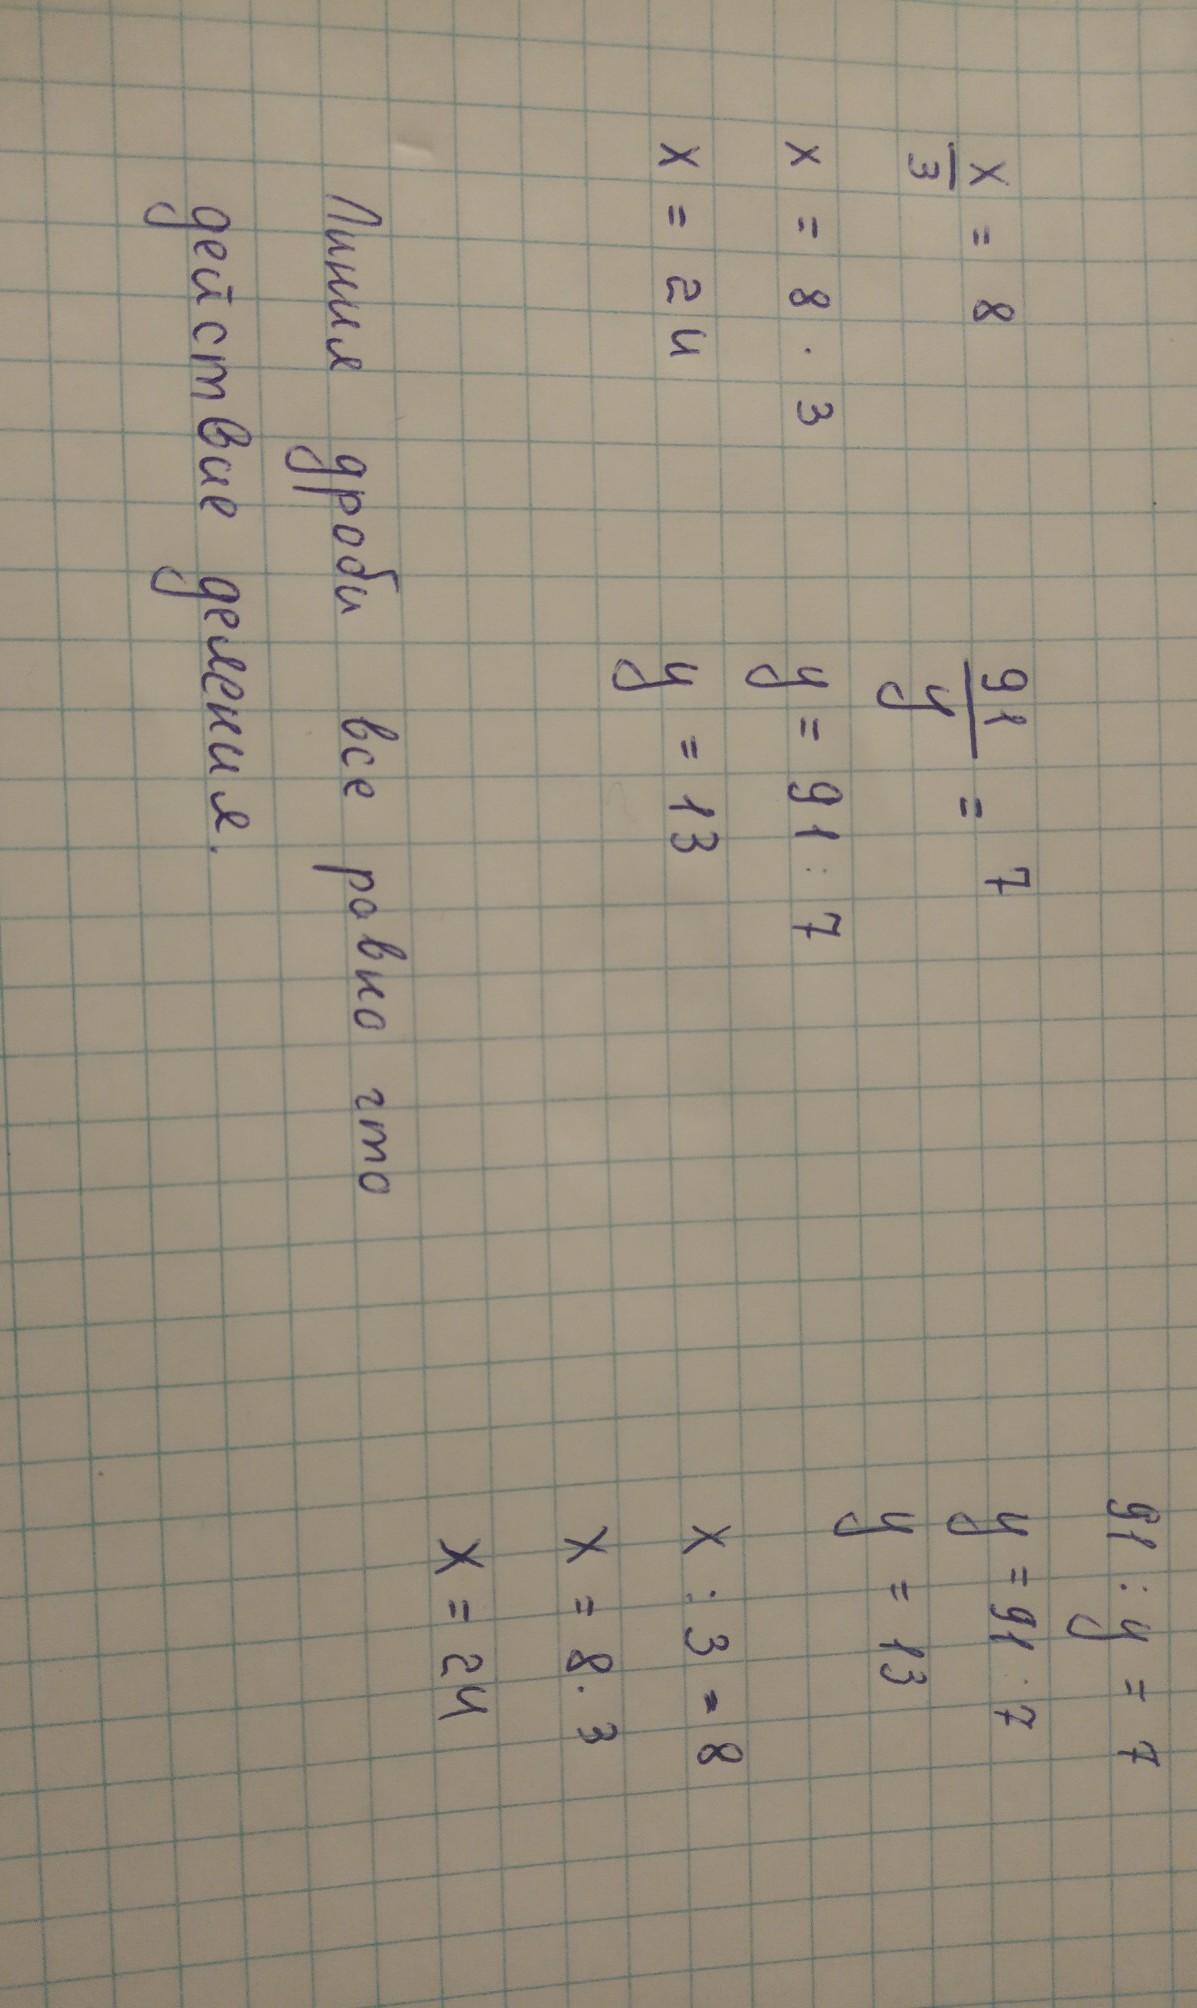 x/3 = 8
x = 8 · 3
x = 24
91/y = 7
y = 91 : 7
y = 13
91 : y = 7
y = 91 : 7
y = 13
x : 3 = 8
x = 8 · 3
x = 24
Линия дроби все равно что
действие деления.